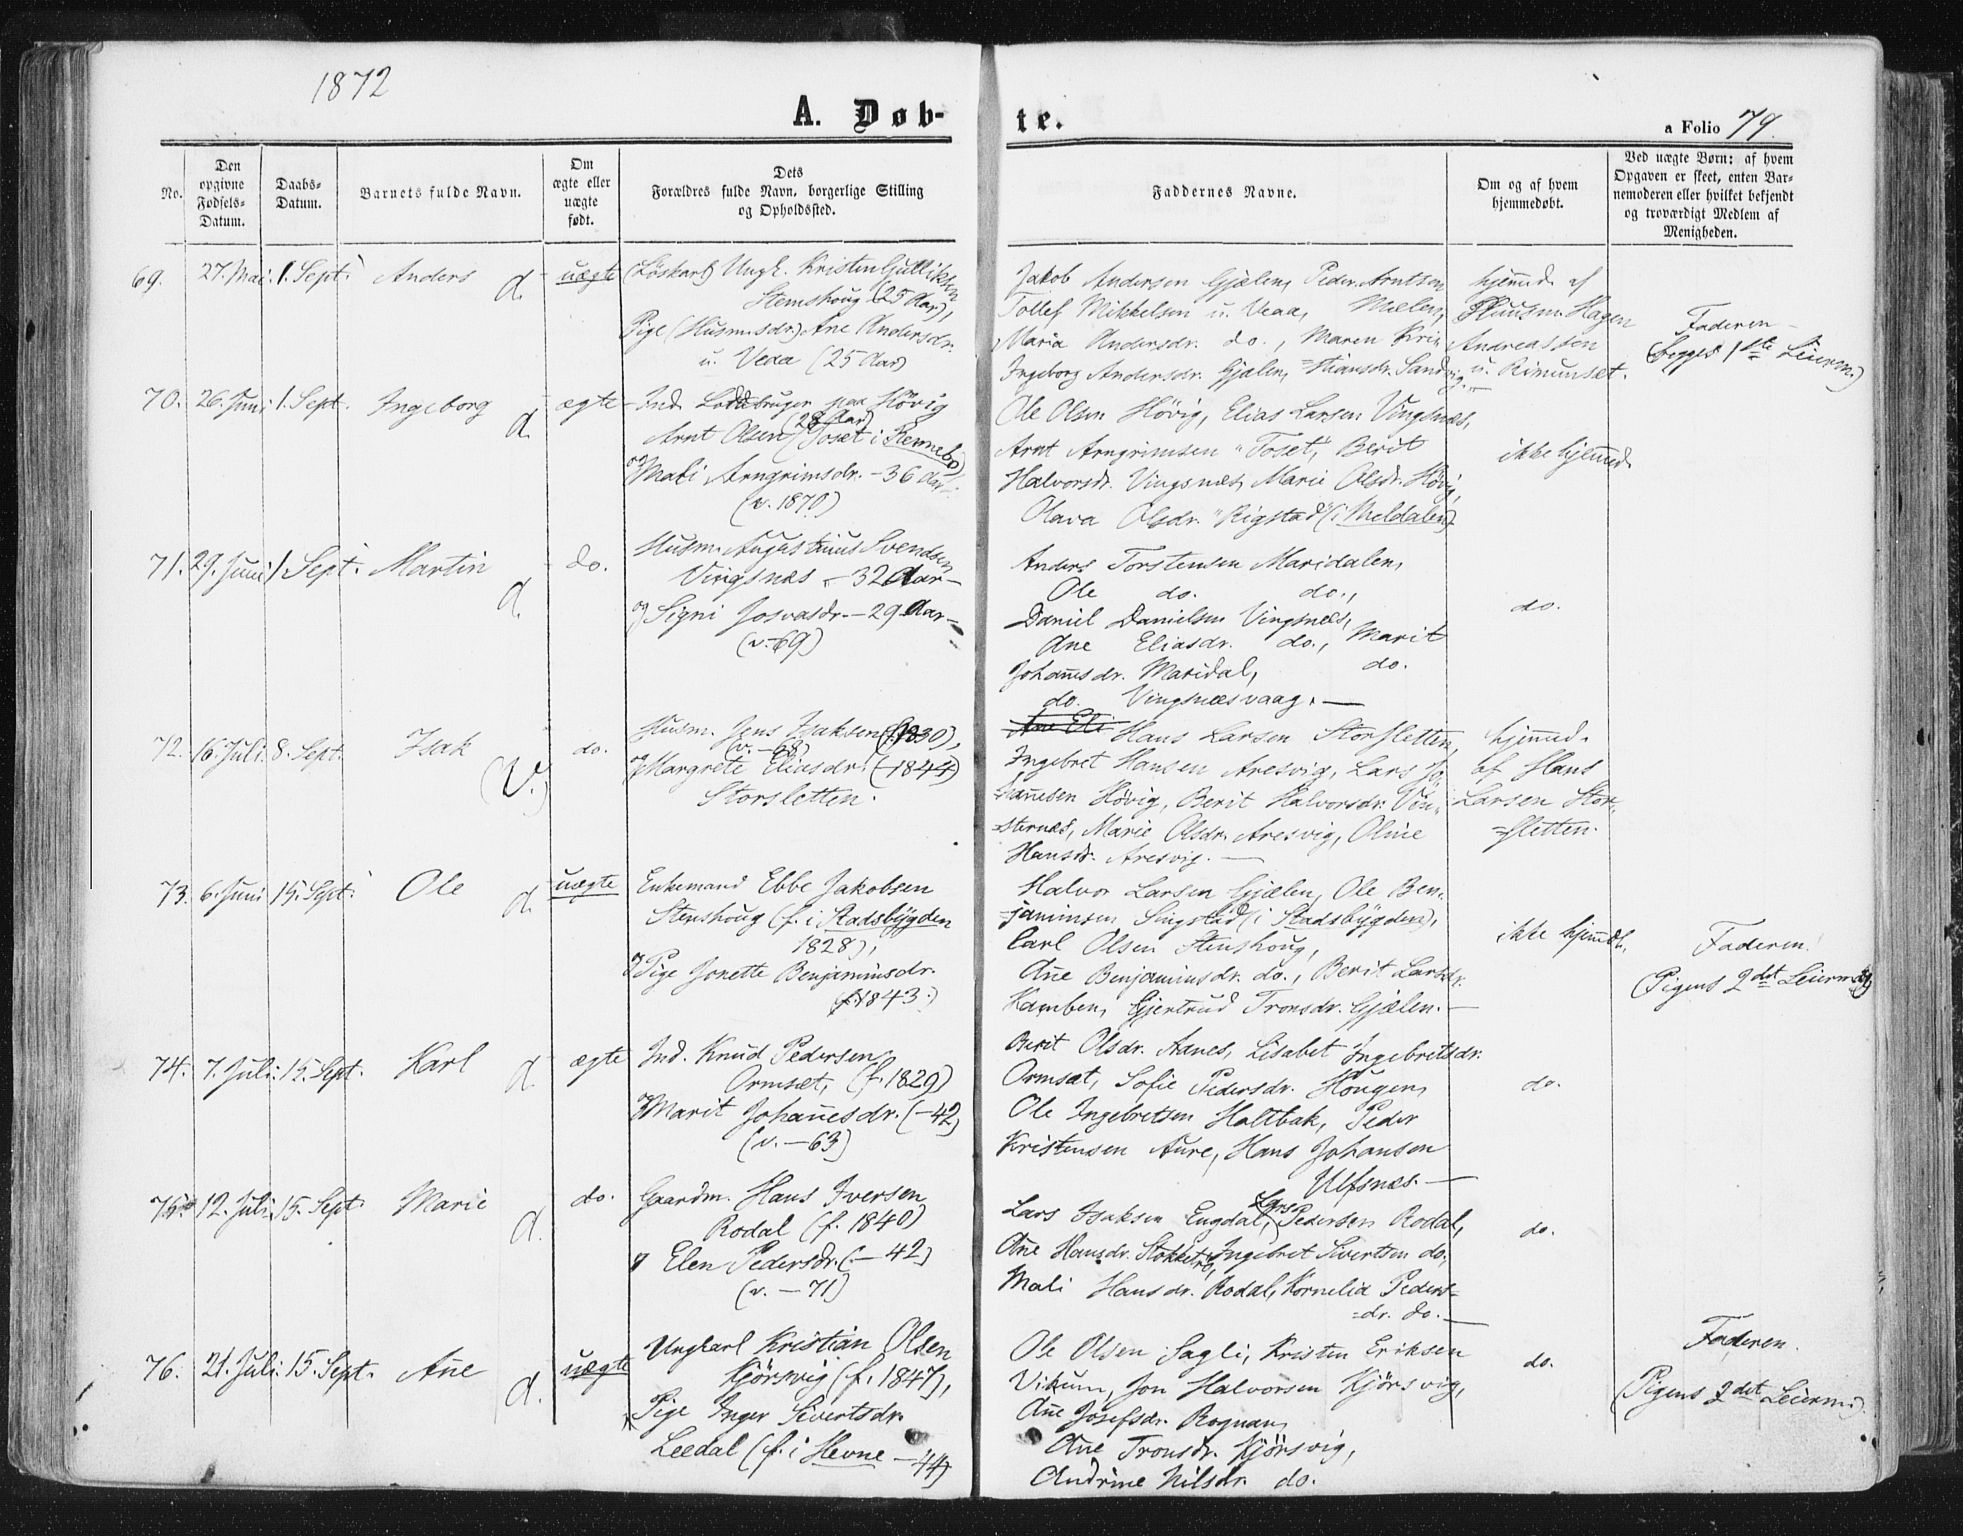 1872
A. Døb-
te.
a Folio 79.
No.
Den opgivne Fødsels-Datum.
Daabs-Datum.
Barnets fulde Navn.
Om ægte eller uægte født.
Dets Forældres fulde Navn, borgerlige Stilling og Opholdssted.
Faddernes Navne.
Om og af hvem hjemmedøbt.
Ved uægte Børn: af hvem Opgaven er skeet, enten Barnemoderen eller hvilket bekjendt og troværdigt Medlem af Menigheden.
69. 27. Mai. 1. Sept. Anders d. uægte
(Løskarl) Ungk. Kristen Gulliksen
Stenshoug (25 Aar),
Pige (Husm.sdr.) Ane Andersdr.
u. Veaa (25 Aar)
Jakob Andersen Gjælen, Peder Arntsen
Tollef Mikkelsen u. Veaa, Mælen,
Maria Andersdr. do., Maren Kri-
Ingeborg Andersdr. Gjælen, =stiansdr. Sandvig.
hjemmed. af
Huusm. Hagen
Andreassen
u. Rimunset.
Faderen
(begges 1ste Leierm.)
70. 26. Juni 1. Sept. Ingeborg d. ægte
Ind. Lodsbruger paa Høvig
Arnt Olsen (28 Aar) (Toset i Rennebo)
og Mali Arngrimsdr. - 36 Aar
(v. 1870)
Ole Olsen Høvig, Elias Larsen Vingsnæs,
Arnt Arngrimsen "Toset", Berit
Halvorsdr. Vingsnæs, Marie Olsdr. Høvig,
Olava Olsdr. "Rigstad" (i Meldalen)
ikke hjemmed.
71. 29. Juni 1 Sept. Martin d. do.
Husm. Augustinus Svendsen
Vingsnæs - 32 Aar -
og Signi Josvasdr. - 29 Aar -
(v. 69)
Anders Torstensen Maridalen,
Ole do. do.,
Daniel Danielsen Vingsnæs,
Ane Eliasdr. do., Marit
Johannesdr. Maridal, do.
do. Vingsnæsvaag. —
do.
72. 16. Juli. 8. Sept. Isak (V.) do.
Husm. Jens Isaksen (f. 1830),
(v. - 68)
og Margrete Eliasdr. (- 1844)
Storsletten.
Ane Eli Hans Larsen Storsletten,
Ingebret Hansen Aresvig, Lars Jo-
hannesen Høvig, Berit Halvorsdr. Vin-
=sternæs, Marie Olsdr. Aresvig, Oline
Hansdr. Aresvig. —
hjemmed.
af Hans
Larsen Stor-
=sletten.
73. 6. Juni 15. Sept. Ole d. uægte
Enkemand Ebbe Jakobsen
Stenshoug (f. i Stadsbygden
1828),
og Pige Jonette Benjaminsdr.
(f. 1843.)
Halvor Larsen Gjælen, Ole Ben-
=jaminsen Singstad (i Stadsbygden),
Carl Olsen Stenshoug,
Ane Benjaminsdr. do., Berit Larsdr.
Kamben, Gjertrud Tronsdr. Gjælen. —
ikke hjemmed.
Faderen.
(Pigens 2det Leierm.)
74. 7. Juli. 15. Sept. Karl d. ægte
Ind. Knud Pedersen
Ormsæt, (f. 1829)
og Marit Johannesdr. (- 42)
(v. - 63)
Berit Olsdr. Aanes, Lisabet Ingebretsdr.
Ormsæt, Sofie Pedersdr. Hougen,
Ole Ingebretsen Holtbak, Peder
Kristensen Aure, Hans Johansen
Ulfsnæs. —
do.
75. 12. Juli. 15. Sept. Marie d. do.
Gaardm. Hans Iversen
Rodal (f. 1840)
og Elen Pedersdr. (- 42)
(v. - 71)
Lars Isaksen Engdal, Lars Pedersen Rodal,
Ane Hansdr. Stokkerø, Ingebret Sivertsen do.,
Mali Hansdr. Rodal, Kornelia Peders-
=dr. do. —
do.
76. 21. Juli. 15. Sept. Ane d. uægte
Ungkarl Kristian Olsen
Kjörsvig (f. 1847),
Pige Inger Sivertsdr.
Leedal (f. i Hevne - 44)
Ole Olsen Sagli, Kristen Eriksen
Vikum, Jon Halvorsen Kjörsvig,
Ane Josefsdr. Rognan,
Ane Tronsdr. Kjörsvig,
Andrine Nilsdr. do.
do.
Faderen.
(Pigens 2det Leierm.)